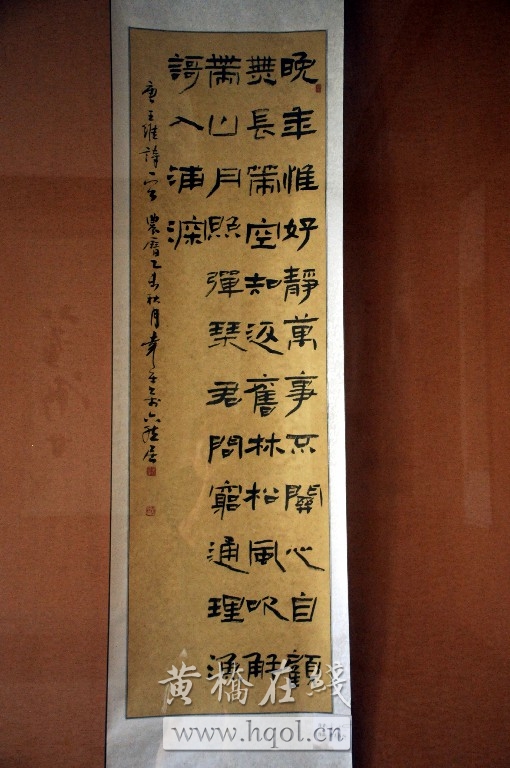 晚年惟好靜萬事不關心自顧
無長策空知返舊林松風吹解
帶山月照彈琴君問窮通理漁
謌入浦深
唐王維詩一首 農曆乙 秋月
黄橋在綫
www.hqol.cn